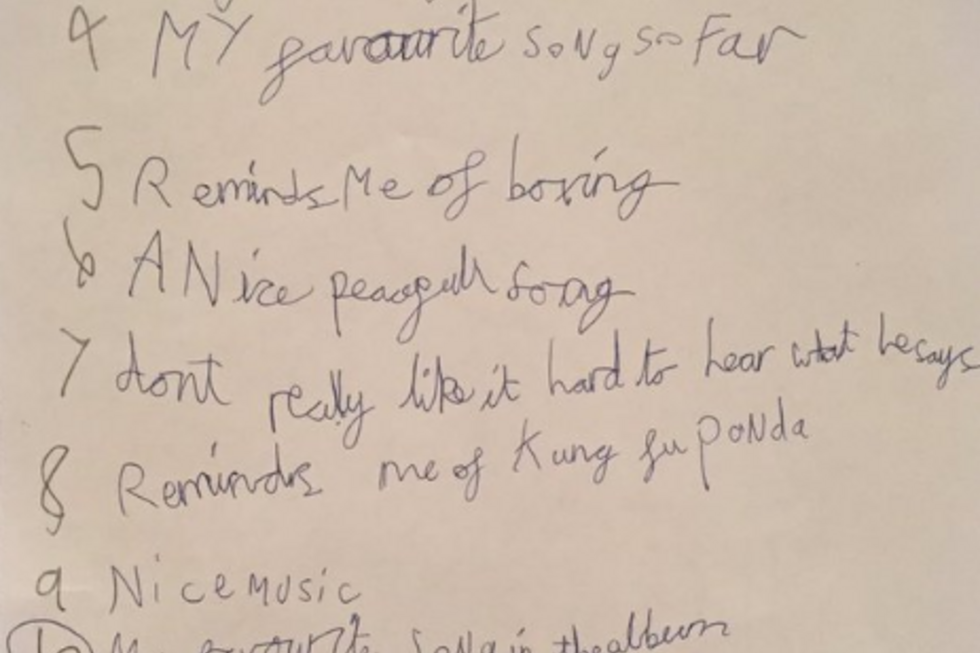 4 MY favourite soNg so Far
5 Reminds Me of boxing
6 A Nice peacefull song
7 dont really like it hard to hear what he says
8 Reminds me of Kung fu PoNda
9 Nice music
10 My favourite song in the album